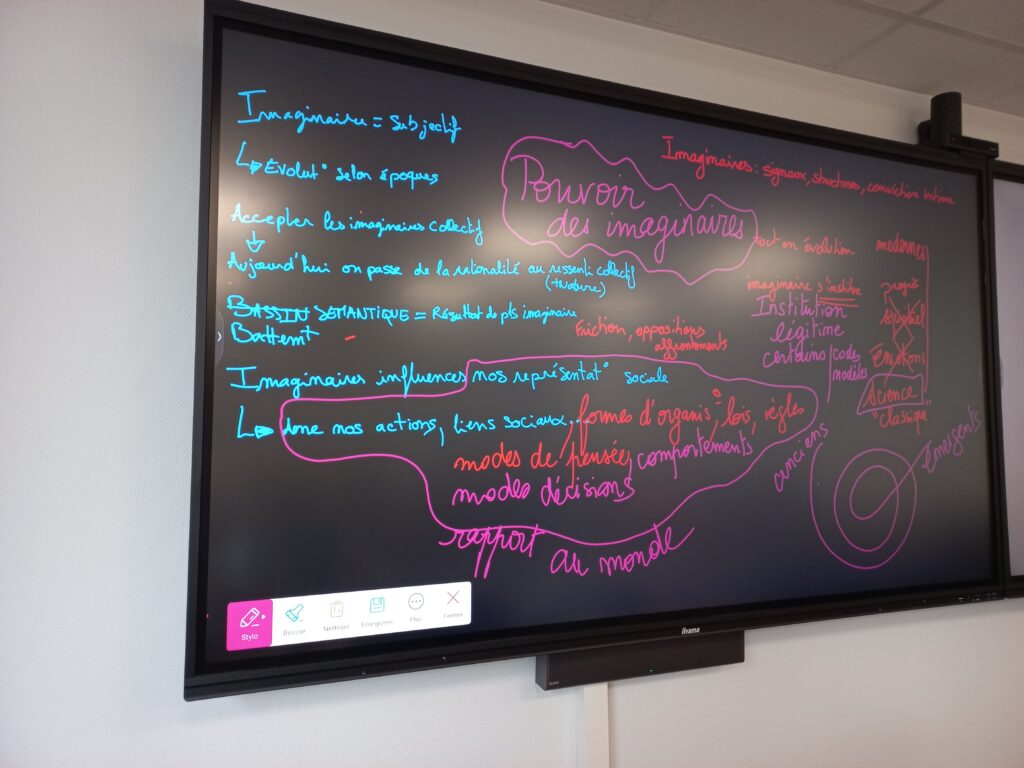 Imaginaire = Subjectif
Évolut° selon époques
Accepter les imaginaires collectif
Aujourd'hui on passe de la rationalité au ressenti collectif
(+Nature)
BASSIN SÉMANTIQUE = Résultat de pls imaginaire
Battemt
Imaginaires influences nos représentat° sociale
donc nos actions, liens sociaux...
formes d'organis°, lois, règles
modes de pensée, comportements
modes décisions
rapport au monde
Pouvoir
des imaginaires
Friction, oppositions
affrontements
Imaginaires: signaux, structures, conviction intime
tout en évolution
imaginaire s'institue
Institution
légitime
certains / code
modèles
modernes
Science
"classique"
anciens
émergents
Stylo
Brosse
Nettoyer
Enregistrer
Plus
Fermer
iiyama